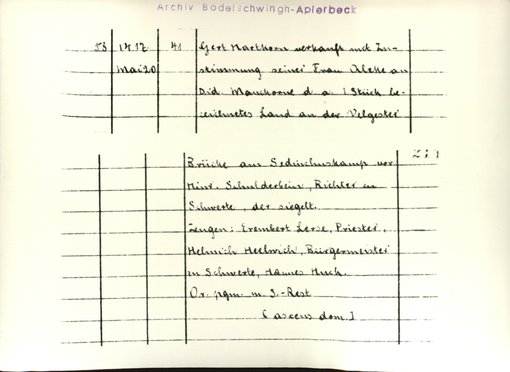 Archiv Bodelschwingh-Aplerbeck
53 1412 41 Gert Marthorn verkauft mit Zu-
Mai 20 stimmung seiner Frau Aleke an
Did. Manhorne d. a. 1 Stück be-
zeichnetes Land an der Velgester
Brücke am Sedinchuskamp vor
Hinr. Schulderbein, Richter in
Schwerte, der siegelt.
Zeugen: Erembert Lerse, Priester,
Helmich Heelwich, Bürgermeister
in Schwerte, Hannes Huck.
Or. pgm. m. S.-Rest
[ascens dom.]